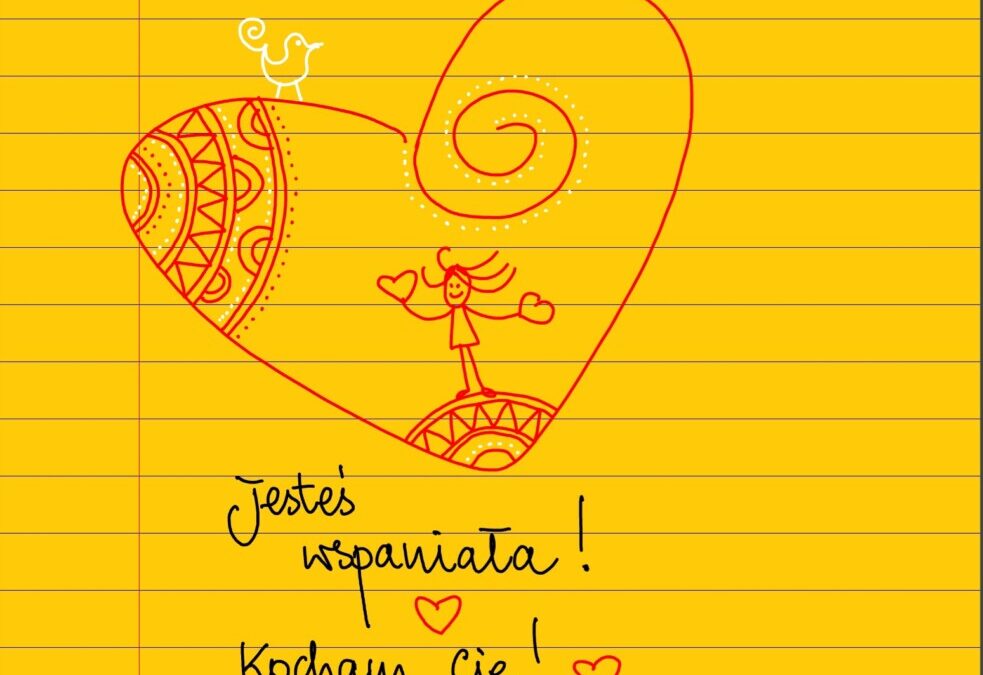 Jesteś
wspaniała!
Kocham Cię!